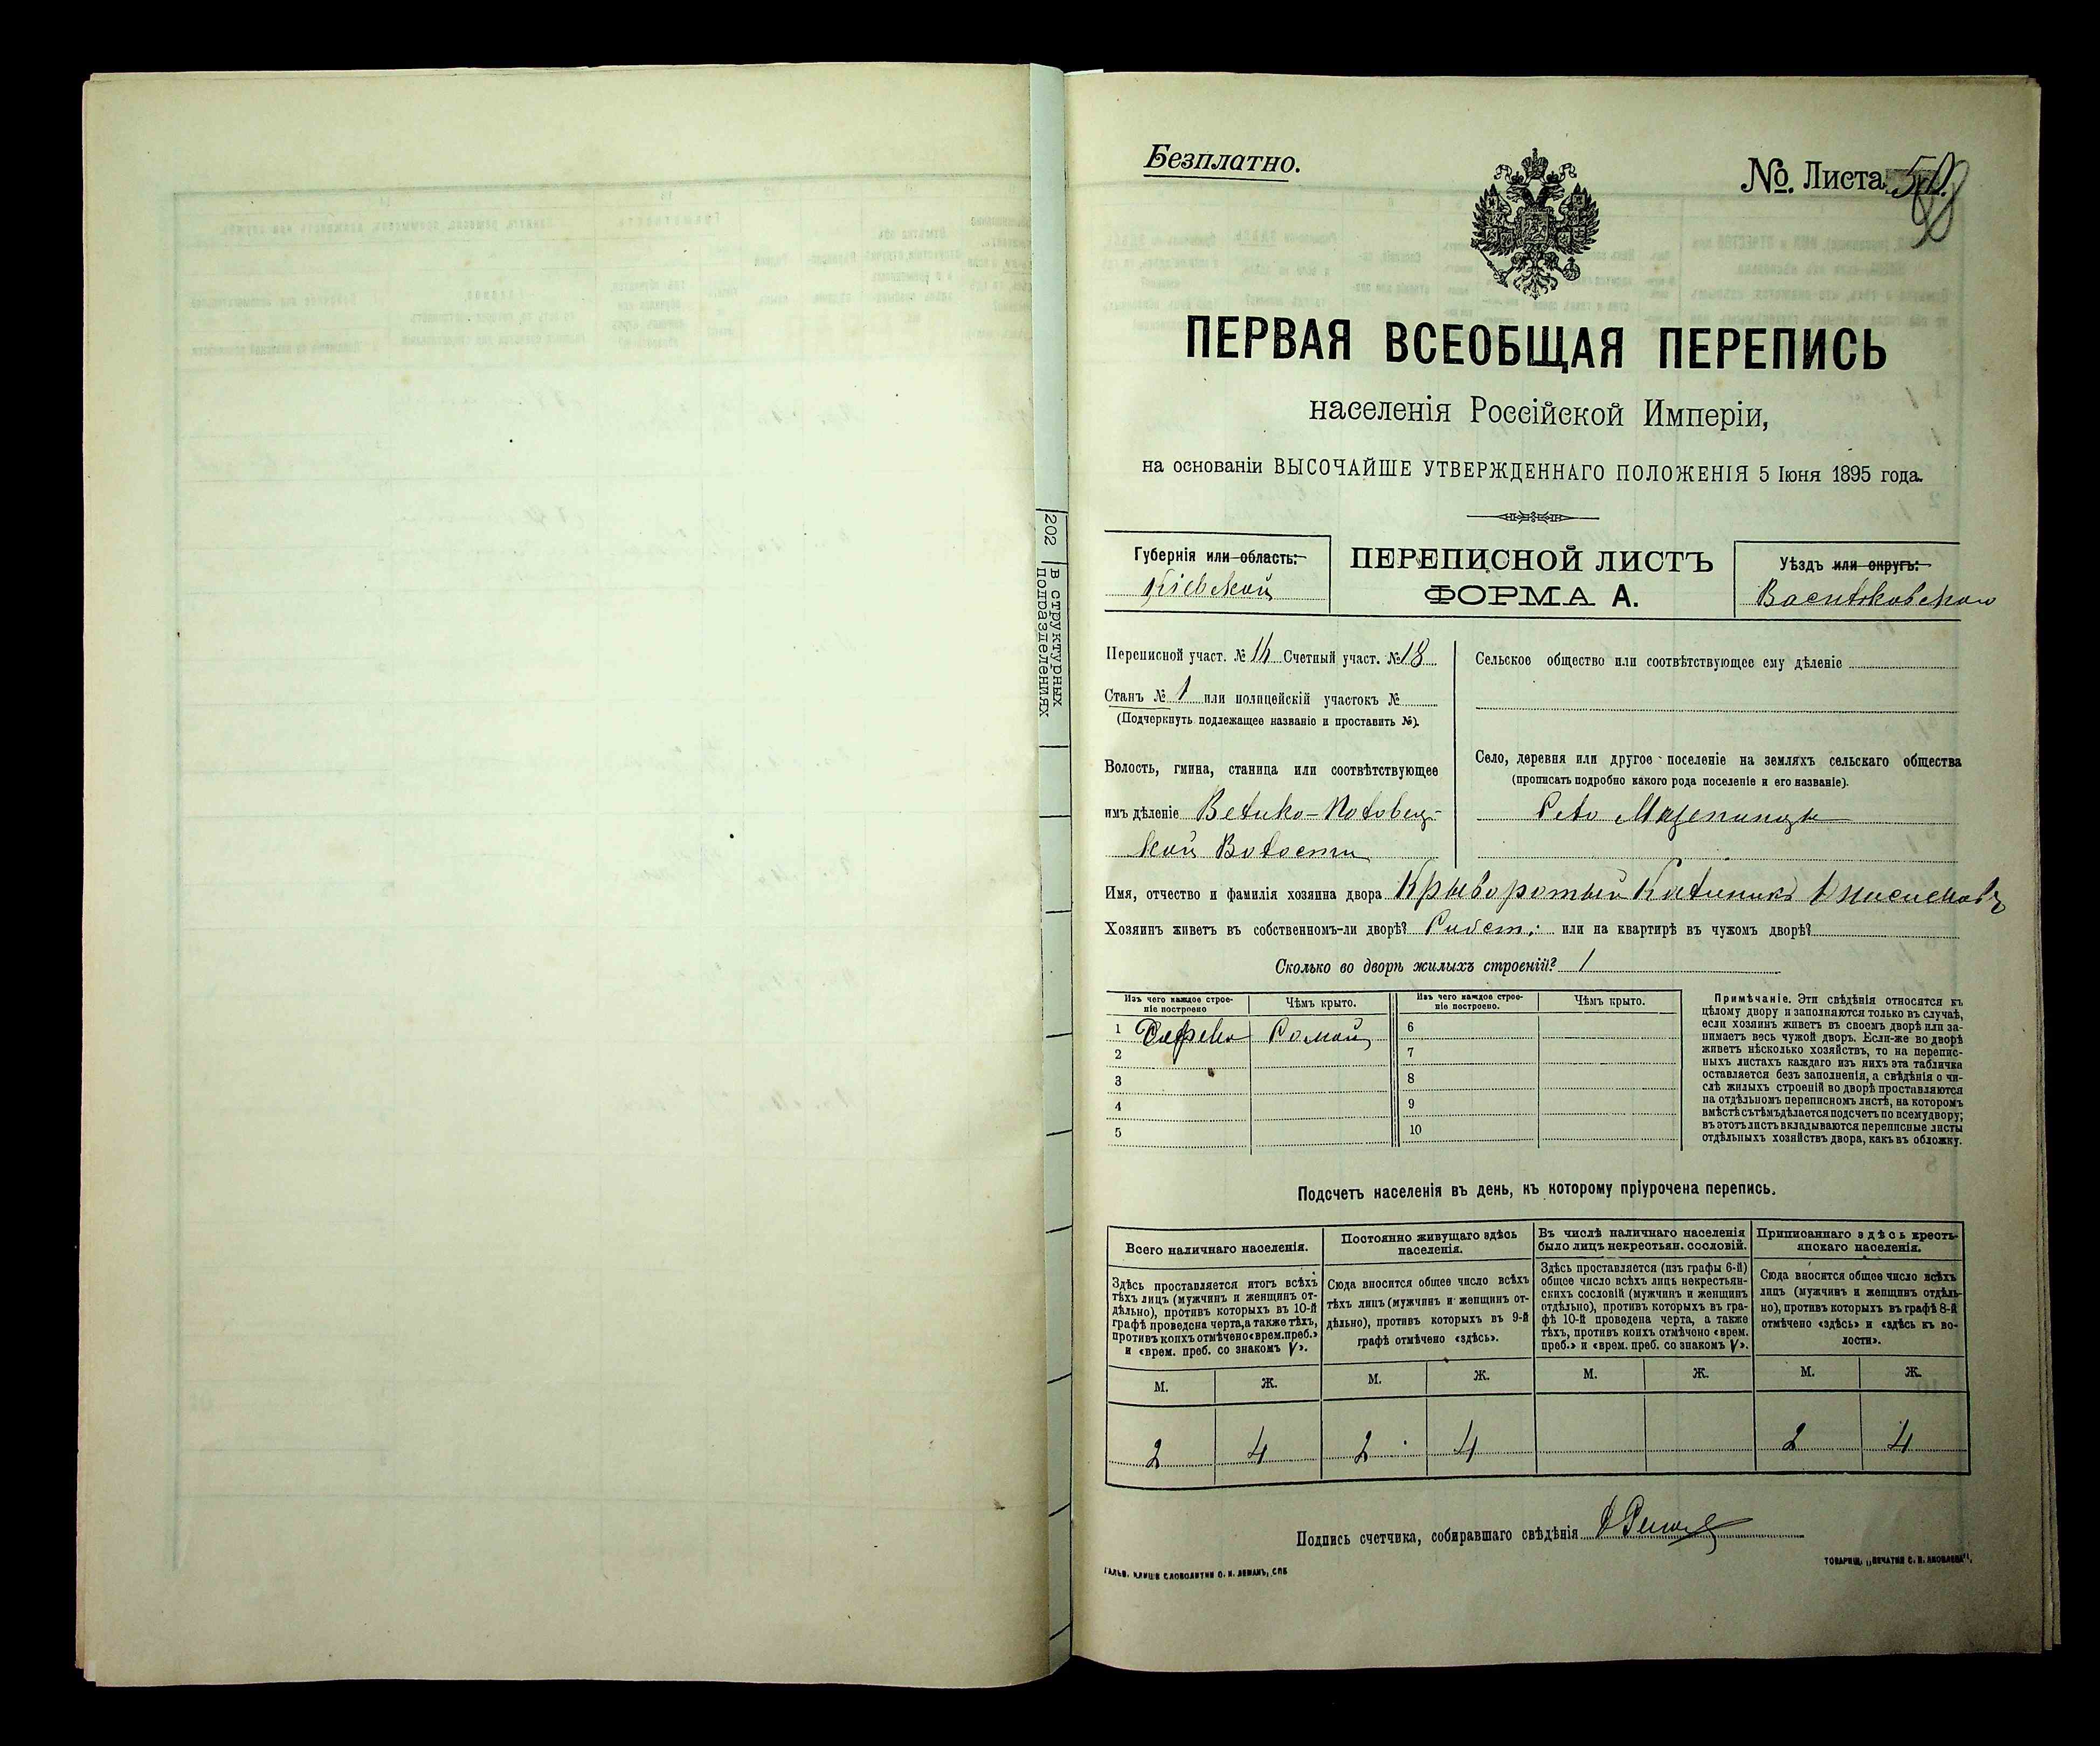 Безплатно.
№. Листа 50.
ПЕРВАЯ ВСЕОБЩАЯ ПЕРЕПИСЬ
населенія Россійской Имперіи,
на основаніи ВЫСОЧАЙШЕ УТВЕРЖДЕННАГО ПОЛОЖЕНІЯ 5 Іюня 1895 года.
Губернія или область:
Кіевской
ПЕРЕПИСНОЙ ЛИСТЪ
ФОРМА А.
Уѣздъ или округъ:
Васильковскаго
202 В структурных
подразделениях
Переписной участ. № 14 Счетный участ. № 18
Станъ № 1 или полицейскій участокъ №
(Подчеркнуть подлежащее названіе и проставить №).
Волость, гмина, станица или соотвѣтствующее
имъ дѣленіе Велико-Половец-
кой Волости
Сельское общество или соотвѣтствующее ему дѣленіе
Село, деревня или другое поселеніе на земляхъ сельскаго общества
(прописать подробно какого рода поселеніе и его названіе).
Село Мазепинцы
Имя, отчество и фамилія хозяина двора Крыворотый Калиникъ Анисимовъ
Хозяинъ живетъ въ собственномъ-ли дворѣ? или на квартирѣ въ чужомъ дворѣ?
Сколько во дворѣ жилыхъ строеній? 1
Изъ чего каждое строе-
ніе построено
Чѣмъ крыто.
Изъ чего каждое строе-
ніе построено.
Чѣмъ крыто.
1 Дерево Соломой
2
3
4
5
6
7
8
9
10
Примѣчаніе. Эти свѣдѣнія относятся къ
цѣлому двору и заполняются только въ случаѣ,
если хозяинъ живетъ въ своемъ дворѣ или за-
нимаетъ весь чужой дворъ. Если-же во дворѣ
живетъ нѣсколько хозяйствъ, то на перепис-
ныхъ листахъ каждаго изъ нихъ эта табличка
оставляется безъ заполненія, а свѣдѣнія о чи-
слѣ жилыхъ строеній во дворѣ проставляются
на отдѣльномъ переписномъ листѣ, на которомъ
вмѣстѣ съ тѣмъ дѣлается подсчетъ по всему двору;
въ этотъ листъ вкладываются переписные листы
отдѣльныхъ хозяйствъ двора, какъ въ обложку.
Подсчетъ населенія въ день, къ которому пріурочена перепись.
Всего наличнаго населенія.
Здѣсь проставляется итогъ всѣхъ
тѣхъ лицъ (мужчинъ и женщинъ от-
дѣльно), противъ которыхъ въ 10-й
графѣ проведена черта, а также тѣхъ,
противъ коихъ отмѣчено «врем. преб.»
и «врем. преб. со знакомъ V».
Постоянно живущаго здѣсь
населенія.
Сюда вносится общее число всѣхъ
тѣхъ лицъ (мужчинъ и женщинъ от-
дѣльно), противъ которыхъ въ 9-й
графѣ отмѣчено «здѣсь».
Въ числѣ наличнаго населенія
было лицъ некрестьян. сословій.
Здѣсь проставляется (изъ графы 6-й)
общее число всѣхъ лицъ некрестьян-
скихъ сословій (мужчинъ и женщинъ
отдѣльно), противъ которыхъ въ гра-
фѣ 10-й проведена черта, а также
тѣхъ, противъ коихъ отмѣчено «врем.
преб.» и «врем. преб. со знакомъ V».
Приписаннаго здѣсь кресть-
янскаго населенія.
Сюда вносится общее число всѣхъ
лицъ (мужчинъ и женщинъ отдѣль-
но), противъ которыхъ въ графѣ 8-й
отмѣчено «здѣсь» и «здѣсь къ во-
лости».
М. Ж. М. Ж. М. Ж. М. Ж.
2 4 2 4 2 4
Подпись счетчика, собиравшаго свѣдѣнія
ГАЛЬВ. КЛИШЕ СЛОВОЛИТНИ О. И. ЛЕМАНЪ, СПБ
ТОВАРИЩ. „ПЕЧАТНЯ С. П. ЯКОВЛЕВА“.